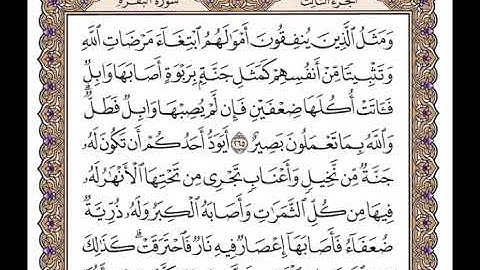 الجزء الثالث سورة البقرة
وَمَثَلُ ٱلَّذِينَ يُنفِقُونَ أَمْوَٰلَهُمُ ٱبْتِغَآءَ مَرْضَاتِ ٱللَّهِ
وَتَثْبِيتًا مِّنْ أَنفُسِهِمْ كَمَثَلِ جَنَّةٍۭ بِرَبْوَةٍ أَصَابَهَا وَابِلٌ
فَـَٔاتَتْ أُكُلَهَا ضِعْفَيْنِ فَإِن لَّمْ يُصِبْهَا وَابِلٌ فَطَلٌّۗ
وَٱللَّهُ بِمَا تَعْمَلُونَ بَصِيرٌ ٢٦٥ أَيَوَدُّ أَحَدُكُمْ أَن تَكُونَ لَهُۥ
جَنَّةٌ مِّن نَّخِيلٍ وَأَعْنَابٍ تَجْرِى مِن تَحْتِهَا ٱلْأَنْهَٰرُ لَهُۥ
فِيهَا مِن كُلِّ ٱلثَّمَرَٰتِ وَأَصَابَهُ ٱلْكِبَرُ وَلَهُۥ ذُرِّيَّةٌ
ضُعَفَآءُ فَأَصَابَهَآ إِعْصَارٌ فِيهِ نَارٌ فَٱحْتَرَقَتْۗ كَذَٰلِكَ